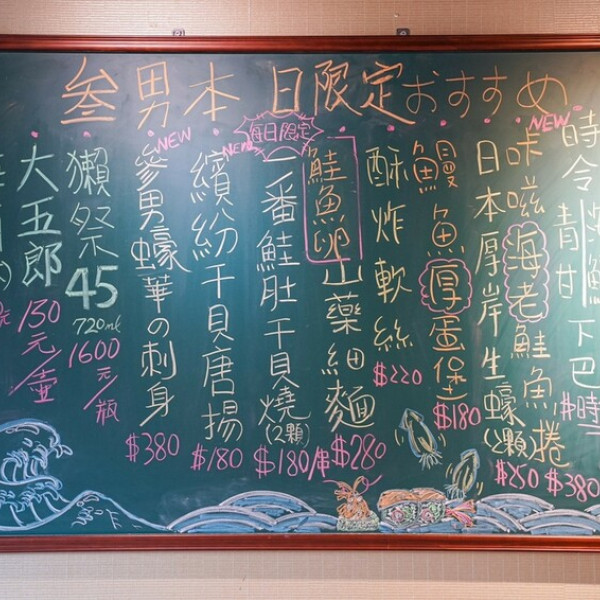 叁男本日限定おすすめ
時令青甘下巴
NEW
咔滋海老鮭魚捲
$380
日本厚岸生蠔(2顆)
鰻魚厚蛋堡
$180
酥炸軟絲
$220
鮭魚卵山藥細麵
$280
每日限定
一番鮭肚干貝燒(2顆)
$180/串
NEW
繽紛干貝唐揚
$180
NEW
參男蠔華の刺身
$380
獺祭45
720ml
1600元/瓶
大五郎
150元/壺